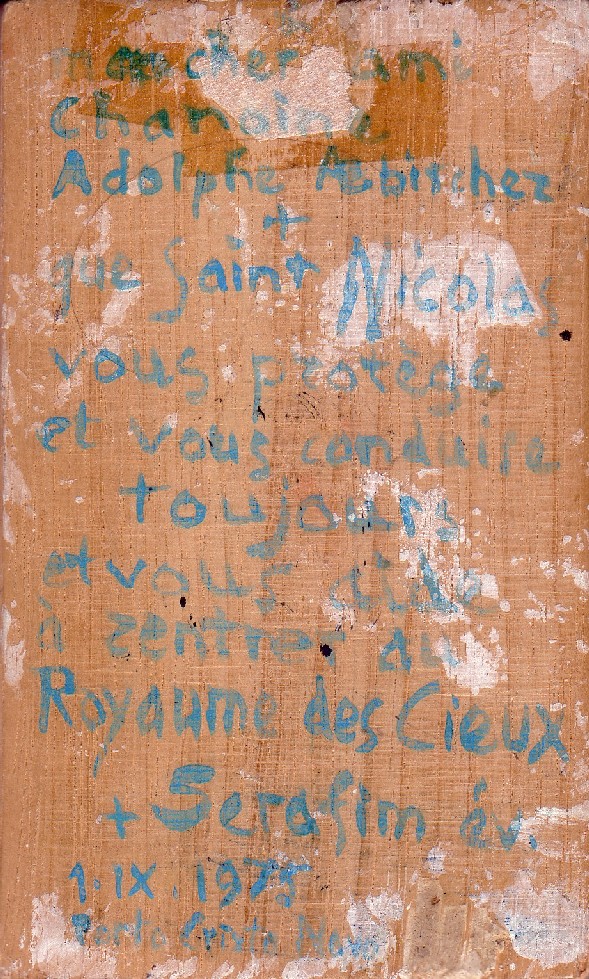 mon cher ami
Chanoine
Adolphe Aebischer
+
que Saint Nicolas
vous protège
et vous conduise
toujours
et vous aide
à rentrer au
Royaume des Cieux
+ Serafim év.
1.IX.1975
Porto Cristo Novo